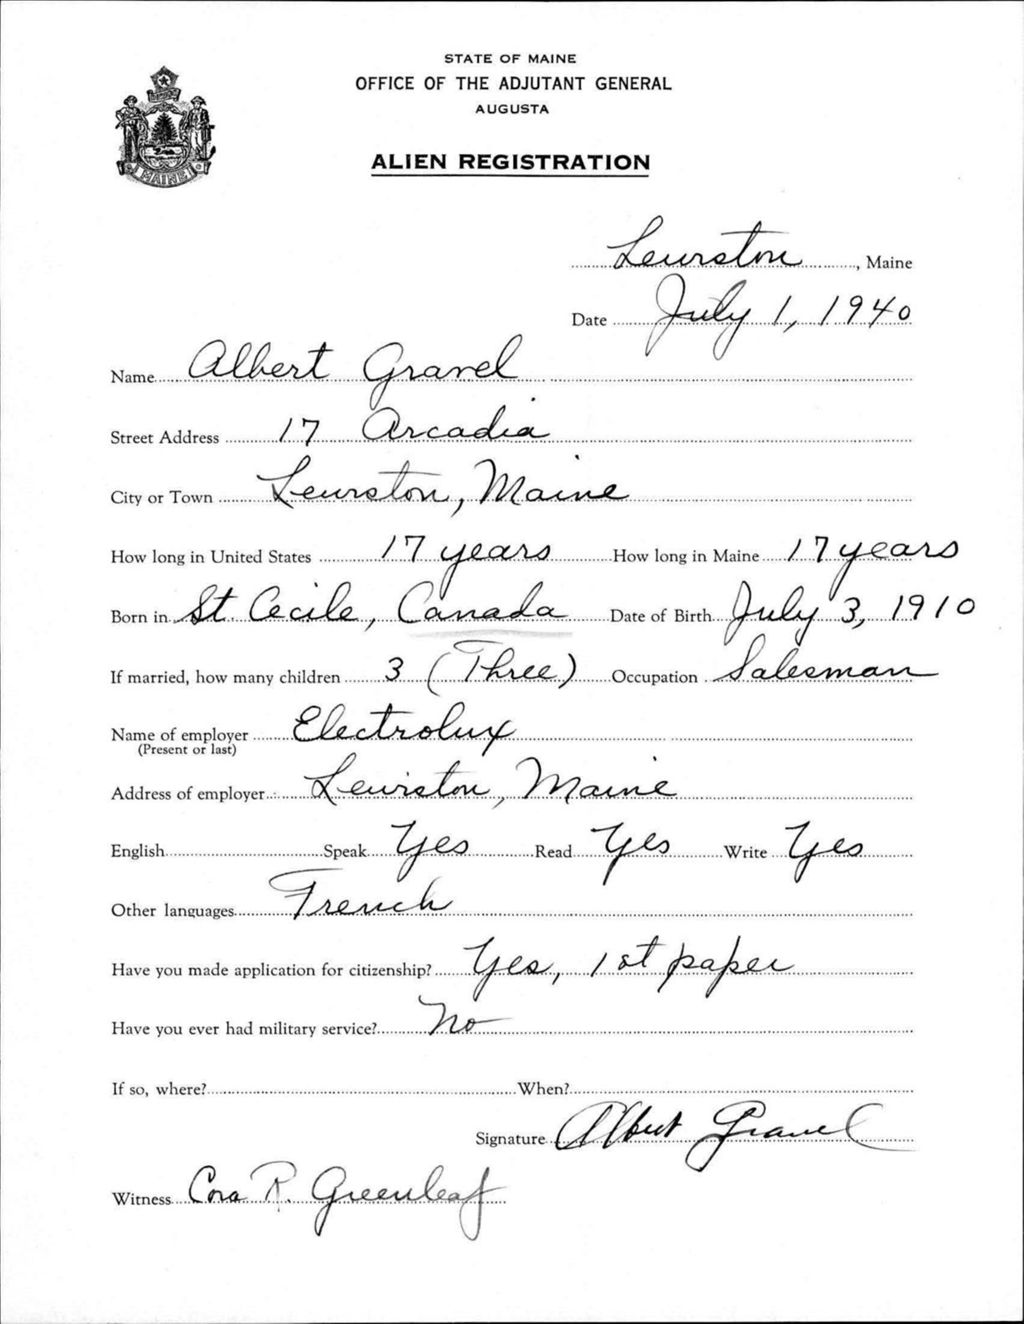 STATE OF MAINE
OFFICE OF THE ADJUTANT GENERAL
AUGUSTA
MAINE
ALIEN REGISTRATION
Lewiston, Maine
Date July 1, 1940
Name Albert Gravel
Street Address 17 Arcadia
City or Town Lewiston, Maine
How long in United States 17 years How long in Maine 17 years
Born in St. Cecile, Canada Date of Birth July 3, 1910
If married, how many children 3 (Three) Occupation Salesman
Name of employer Electrolux
(Present or last)
Address of employer Lewiston, Maine
English Speak Yes Read Yes Write Yes
Other languages French
Have you made application for citizenship? Yes, 1st paper
Have you ever had military service? No
If so, where? When?
Signature Albert Gravel
Witness Cora R. Greenleaf